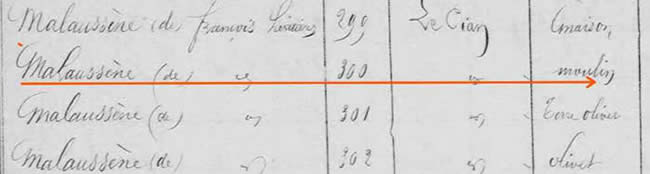 Malaussène (de) françois 299 Le Cian maison
Malaussène (de) " 300 " moulin
Malaussène (de) " 301 " Terre olivier
Malaussène (de) " 302 " olivet